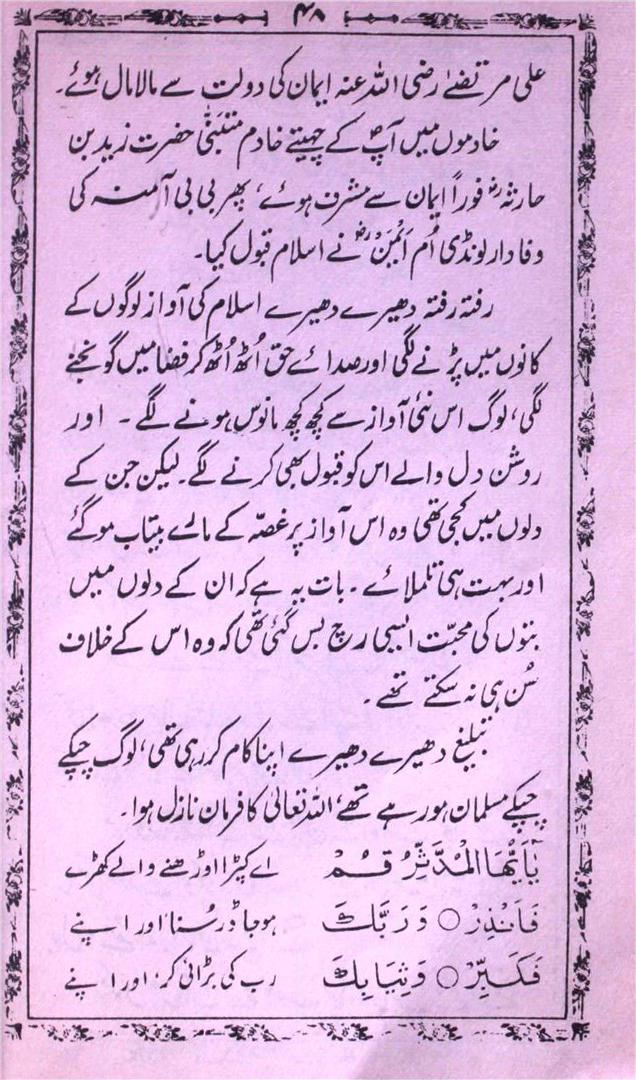 ۴۸
علی مرتضےٰ رضی اللہ عنہ ایمان کی دولت سے مالا مال ہوئے۔
خادموں میں آپؐ کے چہیتے خادم متبنّیٰ حضرت زید بن
حارثہؓ فوراً ایمان سے مشرف ہوئے، پھر بی بی آمنہ کی
وفادار لونڈی اُم اَیْمَنْؓ نے اسلام قبول کیا۔
رفتہ رفتہ دھیرے دھیرے اسلام کی آواز لوگوں کے
کانوں میں پڑنے لگی اور صدائے حق اُٹھ اُٹھ کر فضا میں گونجنے
لگی، لوگ اس نئی آواز سے کچھ کچھ مانوس ہونے لگے۔ اور
روشن دل والے اس کو قبول بھی کرنے لگے۔ لیکن جن کے
دلوں میں کجی تھی وہ اس آواز پر غصّہ کے مارے بیتاب ہوگئے
اور بہت ہی تلملائے۔ بات یہ ہے کہ ان کے دلوں میں
بتوں کی محبّت ایسی رچ بس گئی تھی کہ وہ اس کے خلاف
سُن ہی نہ سکتے تھے۔
تبلیغ دھیرے دھیرے اپنا کام کر رہی تھی، لوگ چپکے
چپکے مسلمان ہو رہے تھے، اللہ تعالیٰ کا فرمان نازل ہوا۔
يٰٓاَيُّهَا الْمُدَّثِّرُ قُمْ اے کپڑا اوڑھنے والے کھڑے
فَاَنْذِرْ ○ وَرَبَّكَ ہوجا ڈر سُنا اور اپنے
فَكَبِّرْ ○ وَثِيَابَكَ رب کی بڑائی کر، اور اپنے